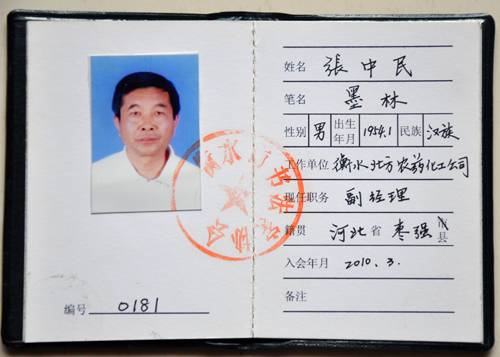 编号 0181
衡水市书法家协会
姓名 張中民
笔名 墨林
性别 男 出生年月 1954.1 民族 汉族
工作单位 衡水北方农药化工公司
现任职务 副经理
籍贯 河北省 枣强 市县
入会年月 2010.3.
备注